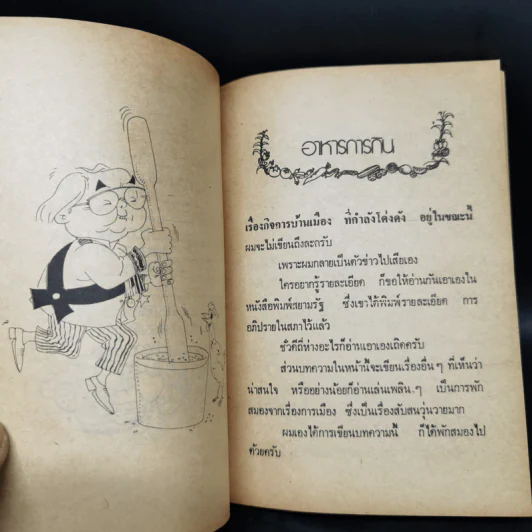 อาหารการกิน
เรื่องกิจการบ้านเมือง ที่กำลังโด่งดัง อยู่ในขณะนี้
ผมจะไม่เขียนถึงละกรับ
เพราะผมกลายเป็นตัวข่าวไปเสียเอง
ใครอยากรู้รายละเอียด ก็ขอให้อ่านกันเอาเองใน
หนังสือพิมพ์สยามรัฐ ซึ่งเขาได้พิมพ์รายละเอียด การ
อภิปรายในสภาไว้แล้ว
ชั่วดีถี่ห่างอะไรก็อ่านเอาเองเถิดครับ
ส่วนบทความในหน้านี้จะเขียนเรื่องอื่น ๆ ที่เห็นว่า
น่าสนใจ หรืออย่างน้อยก็อ่านเล่นเพลิน ๆ เป็นการพัก
สมองจากเรื่องการเมือง ซึ่งเป็นเรื่องสับสนวุ่นวายมาก
ผมเองได้การเขียนบทความนี้ ก็ได้พักสมองไป
ด้วยครับ